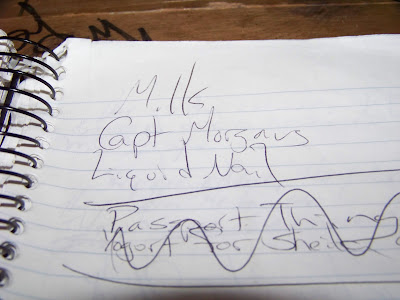 Milk
Capt Morgans
Liquid Nail
Passport Thing
Yogert for Sheila